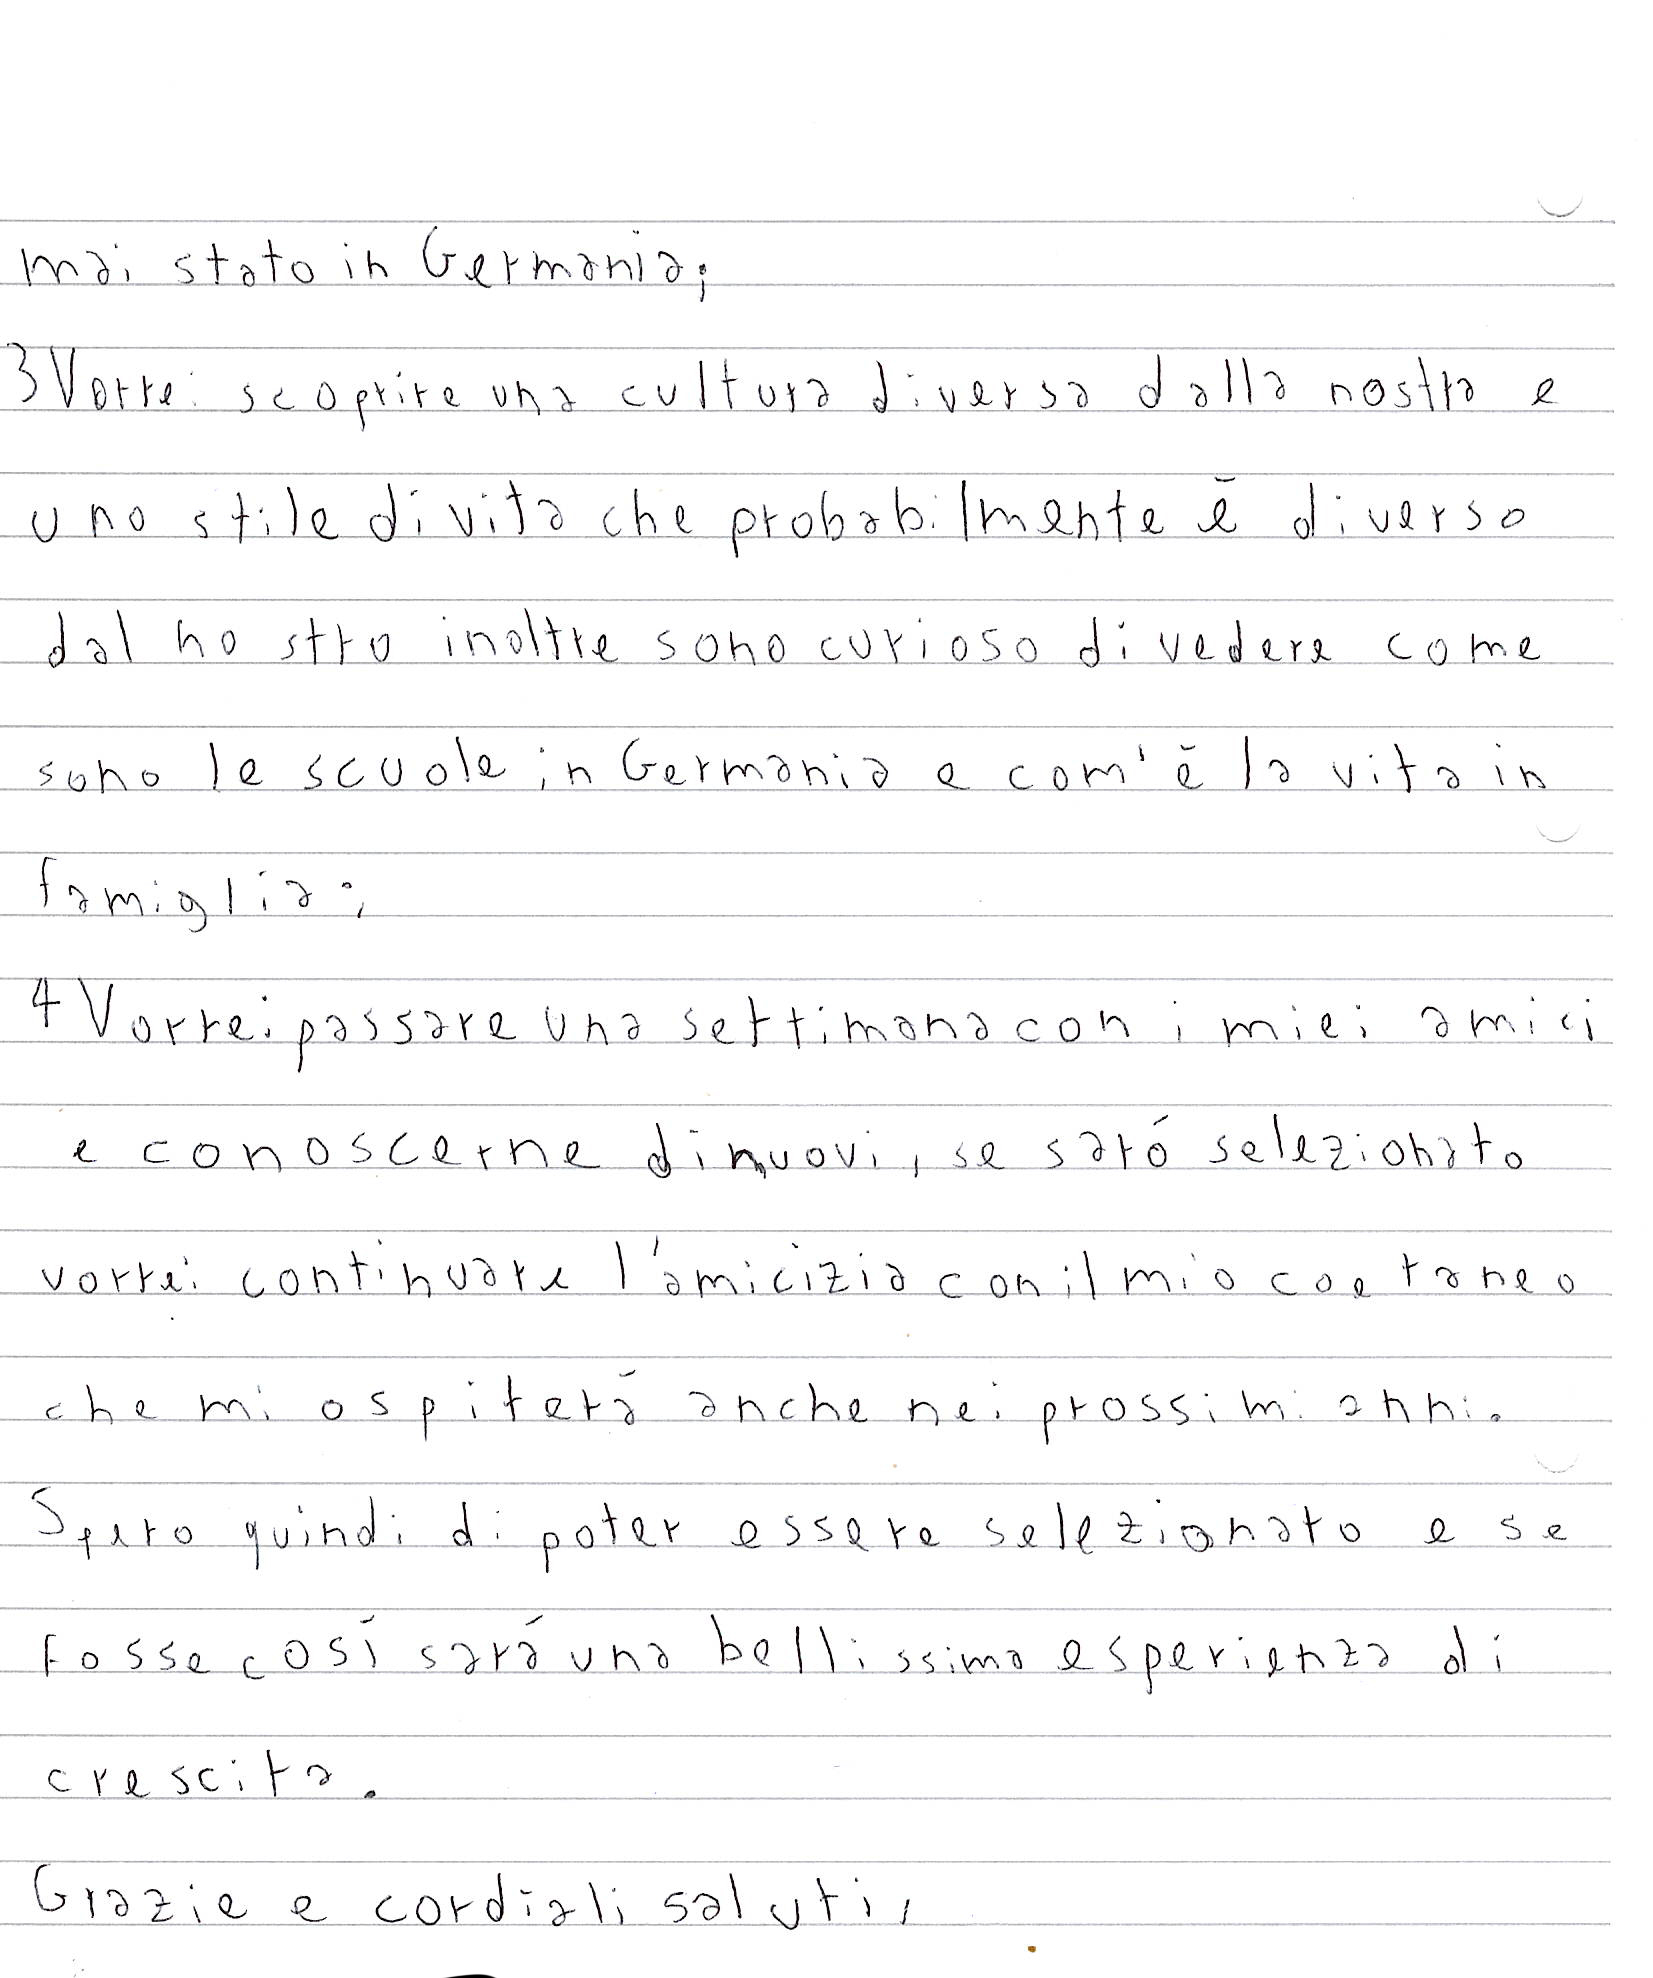 mai stato in Germania;
3 Vorrei scoprire una cultura diversa dalla nostra e
uno stile di vita che probabilmente è diverso
dal nostro inoltre sono curioso di vedere come
sono le scuole in Germania e com'è la vita in
famiglia;
4 Vorrei passare una settimana con i miei amici
e conoscerne di nuovi, se saró selezionato
vorrei continuare l'amicizia con il mio coetaneo
che mi ospiterá anche nei prossimi anni.
Spero quindi di poter essere selezionato e se
fosse cosí sará una bellissima esperienza di
crescita.
Grazie e cordiali saluti,